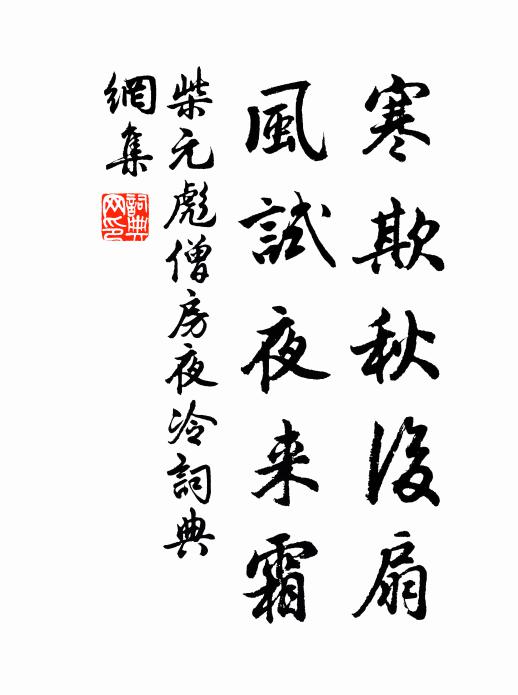 寒欺秋後扇
風試夜来霜
柴元彪僧房夜冷詞典
網集
詞典網印